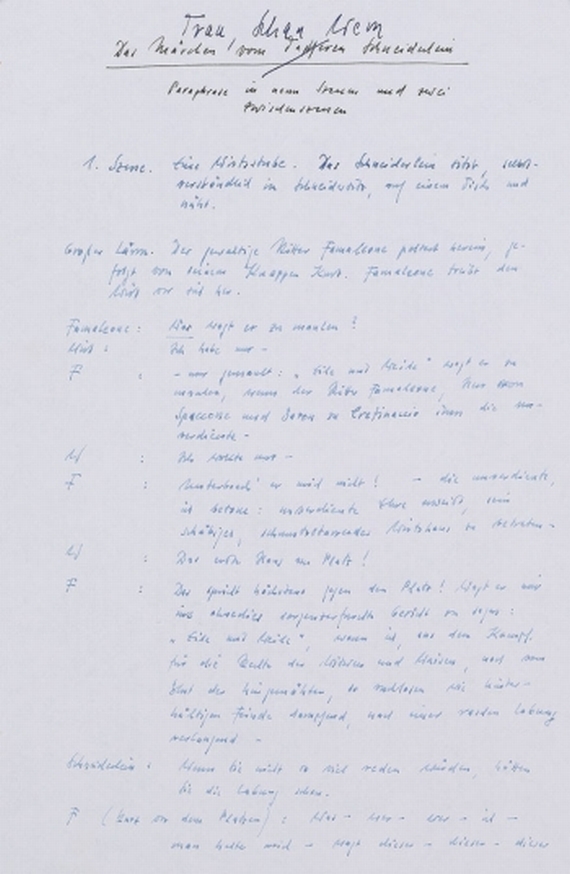 Trau, Schau Wem
Das Märchen vom Tapferen Schneiderlein
Paraphrase in neun Szenen und zwei
Zwischenszenen
1. Szene. Eine Wirtsstube. Das Schneiderlein sitzt, selbst-
verständlich im Schneidersitz, auf einem Tisch und
näht.
Großer Lärm. Der gewaltige Ritter Famaleone poltert herein, ge-
folgt von seinem Knappen Kurt. Famaleone treibt den
Wirt vor sich her.
Famaleone: Was wagt er zu maulen?
Wirt: Ich habe nur -
F : - nur gemault: "Eile mit Weile" wagt er zu
maulen, wenn der Ritter Famaleone, Herr von
und Baron zu ihm die un-
verdiente -
W : Ich wollte nur -
F : Unterbrech' er mich nicht! - die unverdiente,
ich betone: unverdiente Ehre erweist, sein
schäbiges, schmutzstarrendes Wirtshaus zu betreten -
W : Das erste Haus am Platz!
F : Das spricht höchstens gegen den Platz! Wagt er mir
ins ohnedies Gesicht zu sagen:
"Eile mit Weile", wenn ich, aus dem Kampf
für die Rechte der Witwen und Waisen, noch vom
Blut der hingemähten, so ruchlosen wie hinter-
hältigen Feinde dampfend, nach einer raschen Labung
verlangend -
Schneiderlein: Wenn Sie nicht so viel reden würden, hätten
Sie die Labung schon.
F (kurz vor dem Platzen): Was - wer - wer - ich -
man halte mich - wagt dieser - dieser - dieser